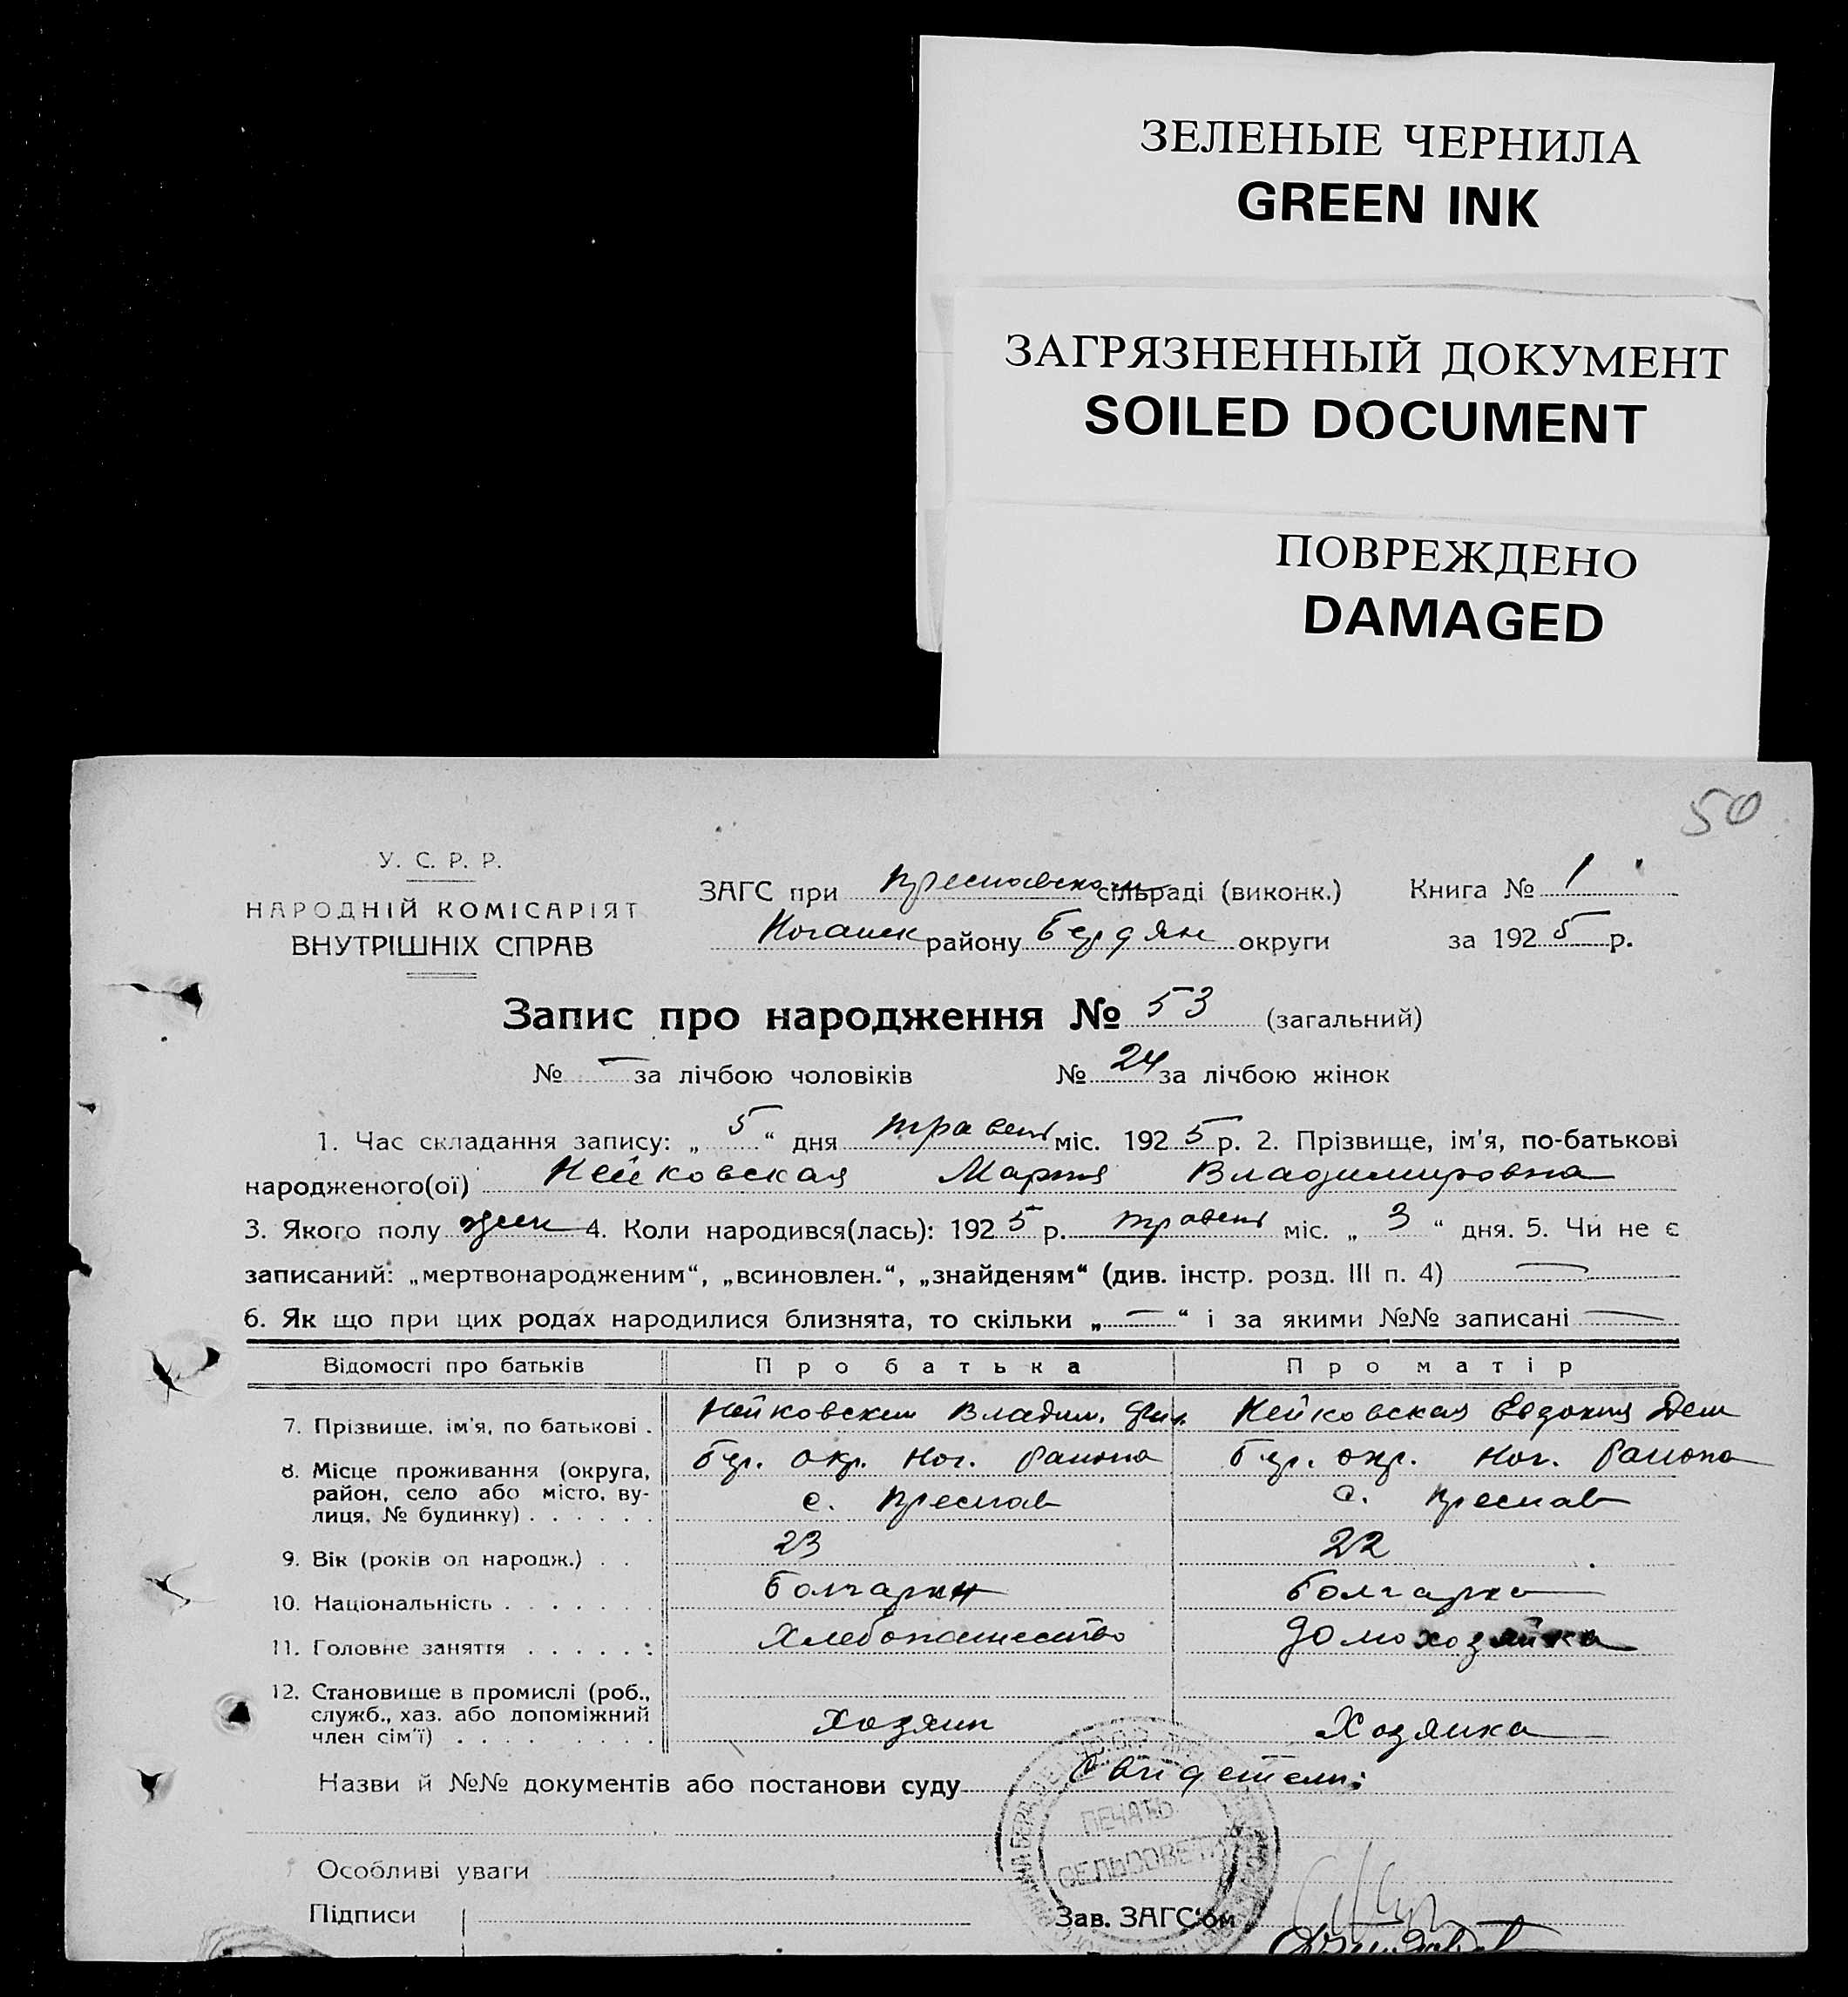 ЗЕЛЕНЫЕ ЧЕРНИЛА
GREEN INK
ЗАГРЯЗНЕННЫЙ ДОКУМЕНТ
SOILED DOCUMENT
ПОВРЕЖДЕНО
DAMAGED
50
У. С. Р. Р.
НАРОДНІЙ КОМІСАРІЯТ
ВНУТРІШНІХ СПРАВ
ЗАГС при Преславском сільраді (виконк.) Книга № 1
Ногайск району Бердян округи за 1925 р.
Запис про народження № 53 (загальний)
№ — за лічбою чоловіків № 24 за лічбою жінок
1. Час складання запису: „5“ дня травень міс. 1925 р. 2. Прізвище, ім'я, по-батькові
народженого(ої) Нейковская Мария Владимировна
3. Якого полу жен 4. Коли народився(лась): 1925 р. травень міс. „3“ дня. 5. Чи не є
записаний: „мертвонародженим“, „всиновлен.“, „знайденям“ (див. інстр. розд. III п. 4) —
6. Як що при цих родах народилися близнята, то скільки „—“ і за якими №№ записані —
Відомості про батьків Про батька Про матір
7. Прізвище, ім'я, по батькові . Нейковский Владим. Фил. Нейковская Евдокия Дем
8. Місце проживання (округа, район, село або місто, вулиця, № будинку) . . . . . . Бер. окр. Ног. Района Бер. окр. Ног. Района
с. Преслав с. Преслав
9. Вік (років од народж.) . . 23 22
10. Національність . . . . . . . Болгарин Болгарка
11. Головне заняття . . . . . : Хлебопашество Домохозяйка
12. Становище в промислі (роб., служб., хаз. або допоміжний член сім'ї) . . . . . . . . . Хозяин Хозяйка
Назви й №№ документів або постанови суду Свидетели:
ПЕЧАТЬ
СЕЛЬСОВЕТА
Особливі уваги
Підписи Зав. ЗАГС'ом